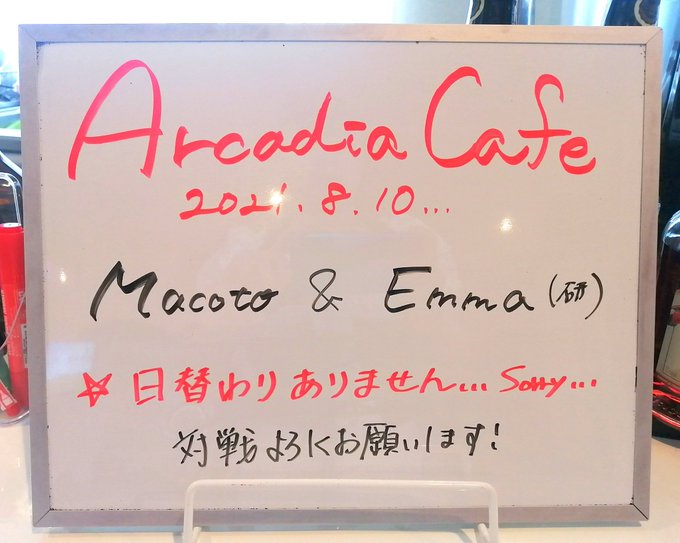 Arcadia Cafe
2021.8.10...
Macoto & Emma (研)
☆ 日替わりありません... Sorry...
対戦よろしくお願いします!